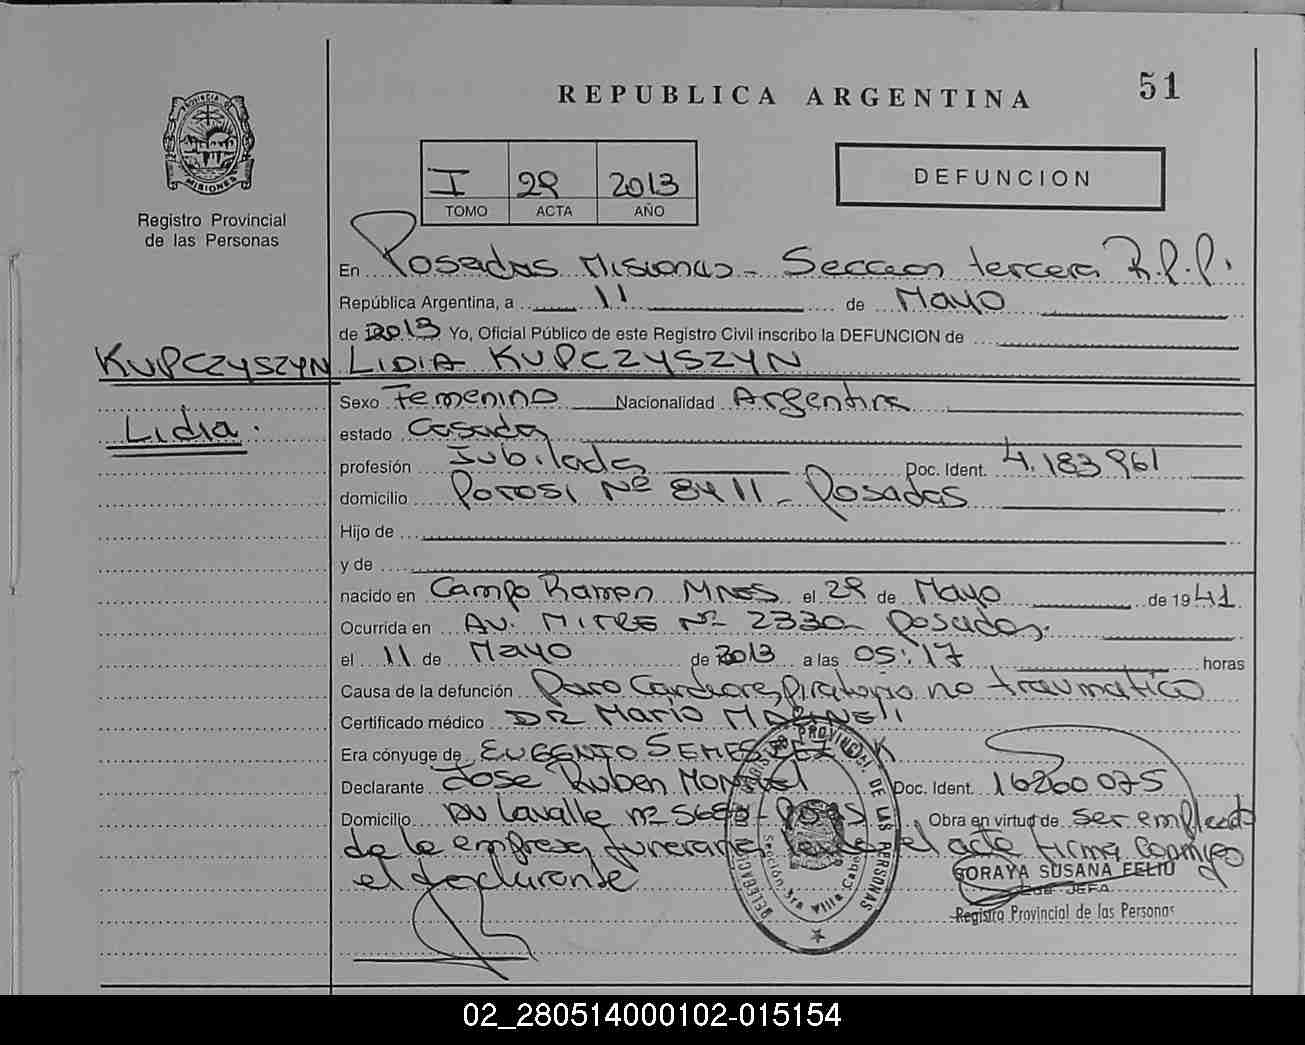 51
REPUBLICA ARGENTINA
PROVINCIA DE
MISIONES
I 29 2013
TOMO ACTA AÑO
DEFUNCION
Registro Provincial
de las Personas
En Posadas Misiones - Seccion tercera R.P.P.
República Argentina, a 11 de Mayo
de 2013 Yo, Oficial Público de este Registro Civil inscribo la DEFUNCION de
KUPCZYSZYN LIDIA KUPCZYSZYN
Sexo Femenino Nacionalidad Argentina
Lidia.
estado Casada
profesión Jubilada Doc. Ident. 4.183961
domicilio Potosi Nº 8411 - Posadas
Hijo de
y de
nacido en Campo Ramon MNES el 29 de Mayo de 1941
Ocurrida en AV. MITRE Nº 2330 - Posadas.
el 11 de Mayo de 2013 a las 05:17 horas
Causa de la defunción Paro Cardiorespiratorio no traumatico
Certificado médico DR Mario
Era cónyuge de EUGENIO
Declarante Jose Ruben Doc. Ident. 16260075
Domicilio Lavalle nº Obra en virtud de ser empleado
de la empresa funeraria el acta firma conmigo
el declarante
SORAYA SUSANA FELIU
SUB JEFA
Registro Provincial de las Personas
REGISTRO PROVINCIAL DE LAS PERSONAS
DELEGACION
Sección 3ra Villa Cabello
02_280514000102-015154